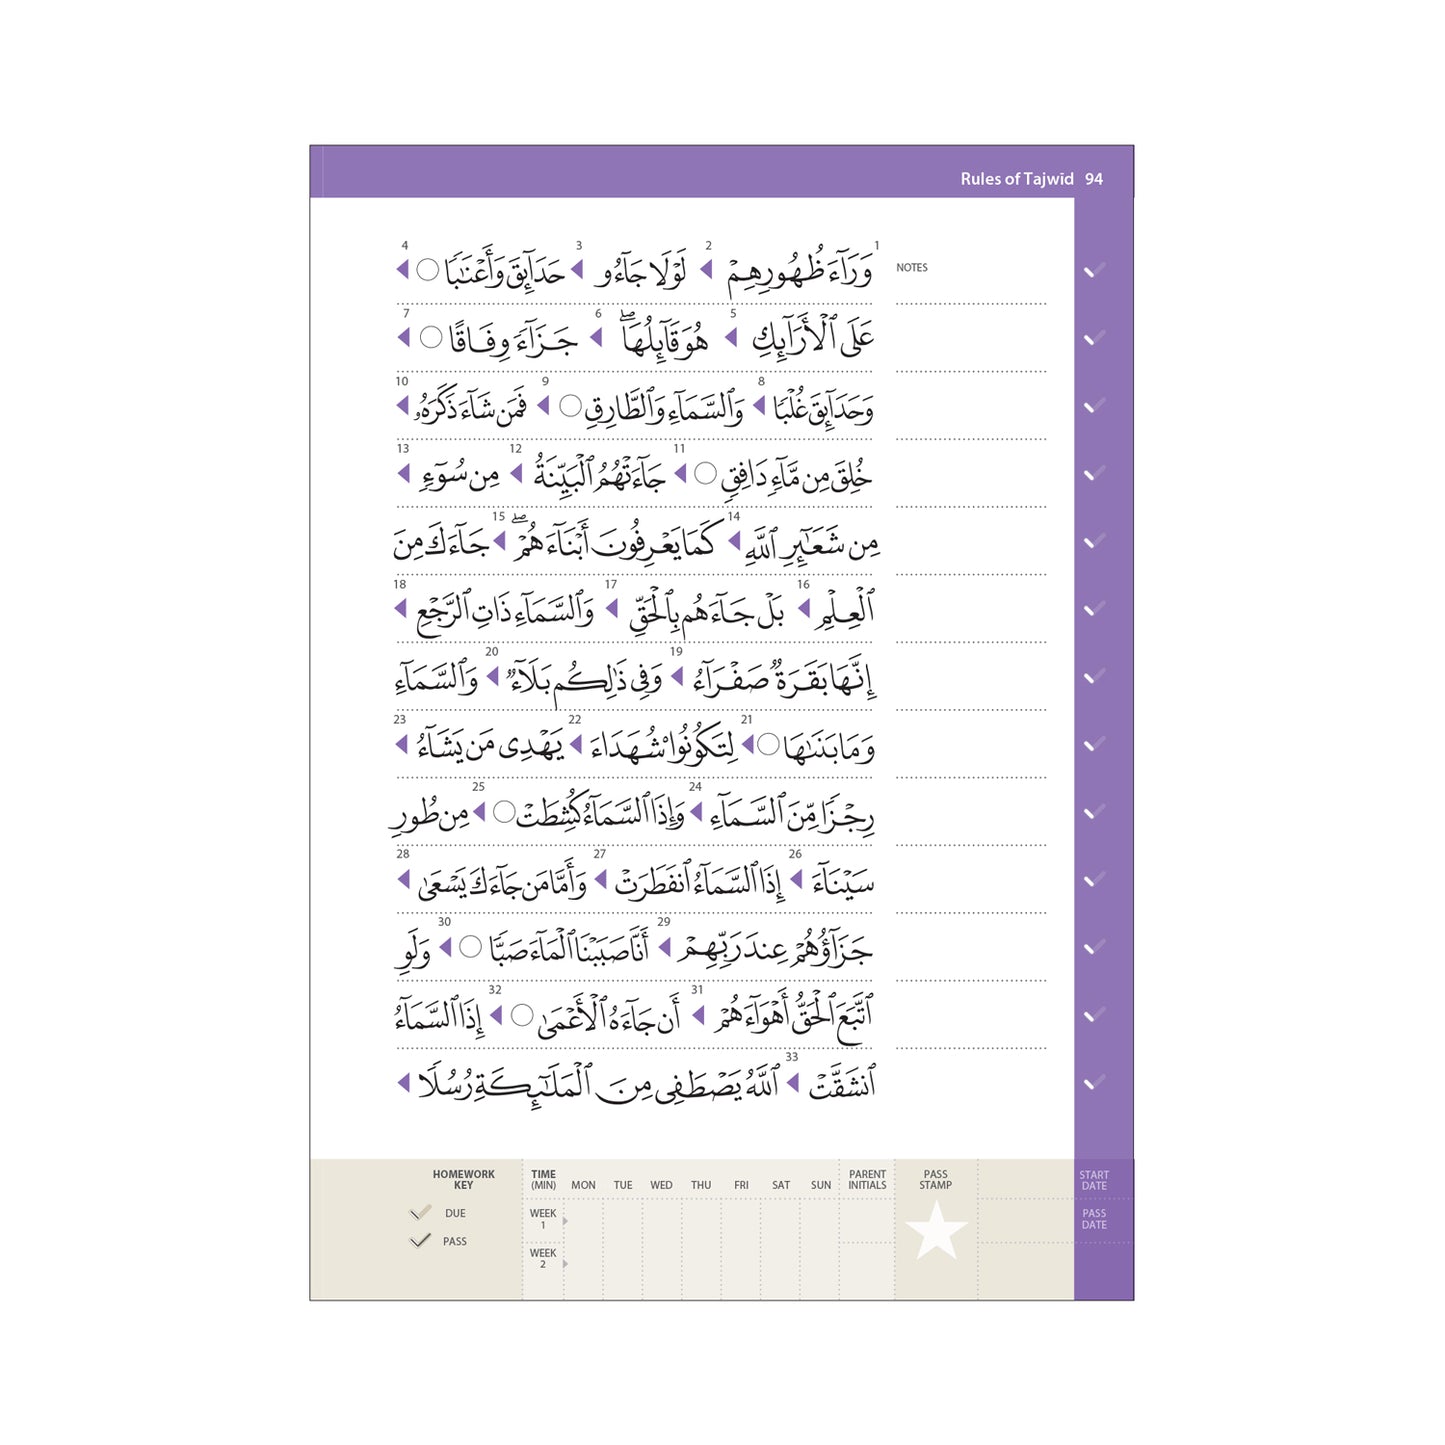 Rules of Tajwid 94
1 وَرَآءَ ظُهُورِهِمْ ◀ 2 لَوْلَا جَآءُو ◀ 3 حَدَآئِقَ وَأَعْنَٰبًا ○ ◀ 4
NOTES
عَلَى ٱلْأَرَآئِكِ ◀ 5 هُوَ قَآئِلُهَا ۖ ◀ 6 جَزَآءً وِفَاقًا ○ ◀ 7
وَحَدَآئِقَ غُلْبًا ◀ 8 وَٱلسَّمَآءِ وَٱلطَّارِقِ ○ ◀ 9 فَمَن شَآءَ ذَكَرَهُۥ ◀ 10
خُلِقَ مِن مَّآءٍ دَافِقٍ ○ ◀ 11 جَآءَتْهُمُ ٱلْبَيِّنَةُ ◀ 12 مِن سُوٓءٍ ◀ 13
مِن شَعَآئِرِ ٱللَّهِ ◀ 14 كَمَا يَعْرِفُونَ أَبْنَآءَهُمْ ۖ ◀ 15 جَآءَكَ مِنَ
ٱلْعِلْمِ ◀ 16 بَلْ جَآءَهُم بِٱلْحَقِّ ◀ 17 وَٱلسَّمَآءِ ذَاتِ ٱلرَّجْعِ ◀ 18
إِنَّهَا بَقَرَةٌ صَفْرَآءُ ◀ 19 وَفِى ذَٰلِكُم بَلَآءٌ ◀ 20 وَٱلسَّمَآءِ
وَمَا بَنَىٰهَا ○ ◀ 21 لِتَكُونُوا۟ شُهَدَآءَ ◀ 22 يَهْدِى مَن يَشَآءُ ◀ 23
رِجْزًا مِّنَ ٱلسَّمَآءِ ◀ 24 وَإِذَا ٱلسَّمَآءُ كُشِطَتْ ○ ◀ 25 مِن طُورِ
سَيْنَآءَ ◀ 26 إِذَا ٱلسَّمَآءُ ٱنفَطَرَتْ ◀ 27 وَأَمَّا مَن جَآءَكَ يَسْعَىٰ ◀ 28
جَزَآؤُهُمْ عِندَ رَبِّهِمْ ◀ 29 أَنَّا صَبَبْنَا ٱلْمَآءَ صَبًّا ○ ◀ 30 وَلَوِ
ٱتَّبَعَ ٱلْحَقُّ أَهْوَآءَهُمْ ◀ 31 أَن جَآءَهُ ٱلْأَعْمَىٰ ○ ◀ 32 إِذَا ٱلسَّمَآءُ
ٱنشَقَّتْ ◀ 33 ٱللَّهُ يَصْطَفِى مِنَ ٱلْمَلَٰٓئِكَةِ رُسُلًا ◀
HOMEWORK KEY
DUE
PASS
TIME (MIN) MON TUE WED THU FRI SAT SUN
WEEK 1
WEEK 2
PARENT INITIALS
PASS STAMP
START DATE
PASS DATE